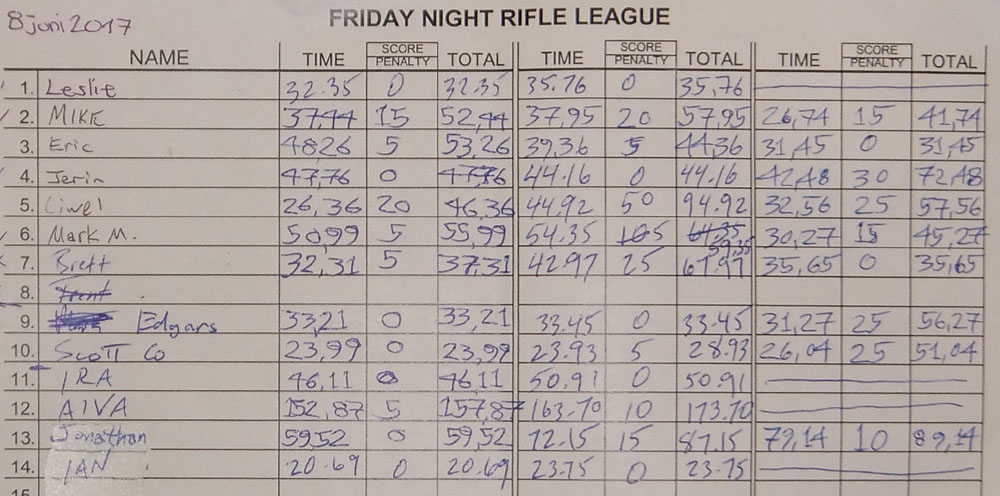 8 juni 2017
FRIDAY NIGHT RIFLE LEAGUE
NAME TIME SCORE PENALTY TOTAL TIME SCORE PENALTY TOTAL TIME SCORE PENALTY TOTAL
1. Leslie 32.35 0 32.35 35.76 0 35,76
2. MIKE 37,44 15 52,44 37,95 20 57,95 26,74 15 41,74
3. Eric 48,26 5 53,26 39,36 5 44,36 31,45 0 31,45
4. Jerin 47,76 0 47,76 44.16 0 44.16 42,48 30 72,48
5. Liwel 26,36 20 46,36 44,92 50 94.92 32,56 25 57,56
6. Mark M. 50,99 5 55,99 54.35 5 59,35 30,27 15 45,27
7. Brett 32,31 5 37,31 42.97 25 67.97 35,65 0 35,65
8. Trent
9. Edgars 33,21 0 33,21 33.45 0 33.45 31,27 25 56,27
10. Scott Co 23,99 0 23,99 23.93 5 28.93 26,04 25 51,04
11. IRA 46,11 0 46,11 50.91 0 50.91
12. AIVA 152,87 5 157,87 163.70 10 173.70
13. Jonathan 59,52 0 59,52 72.15 15 87.15 79,14 10 89,14
14. IAN 20.69 0 20.69 23.75 0 23.75
15